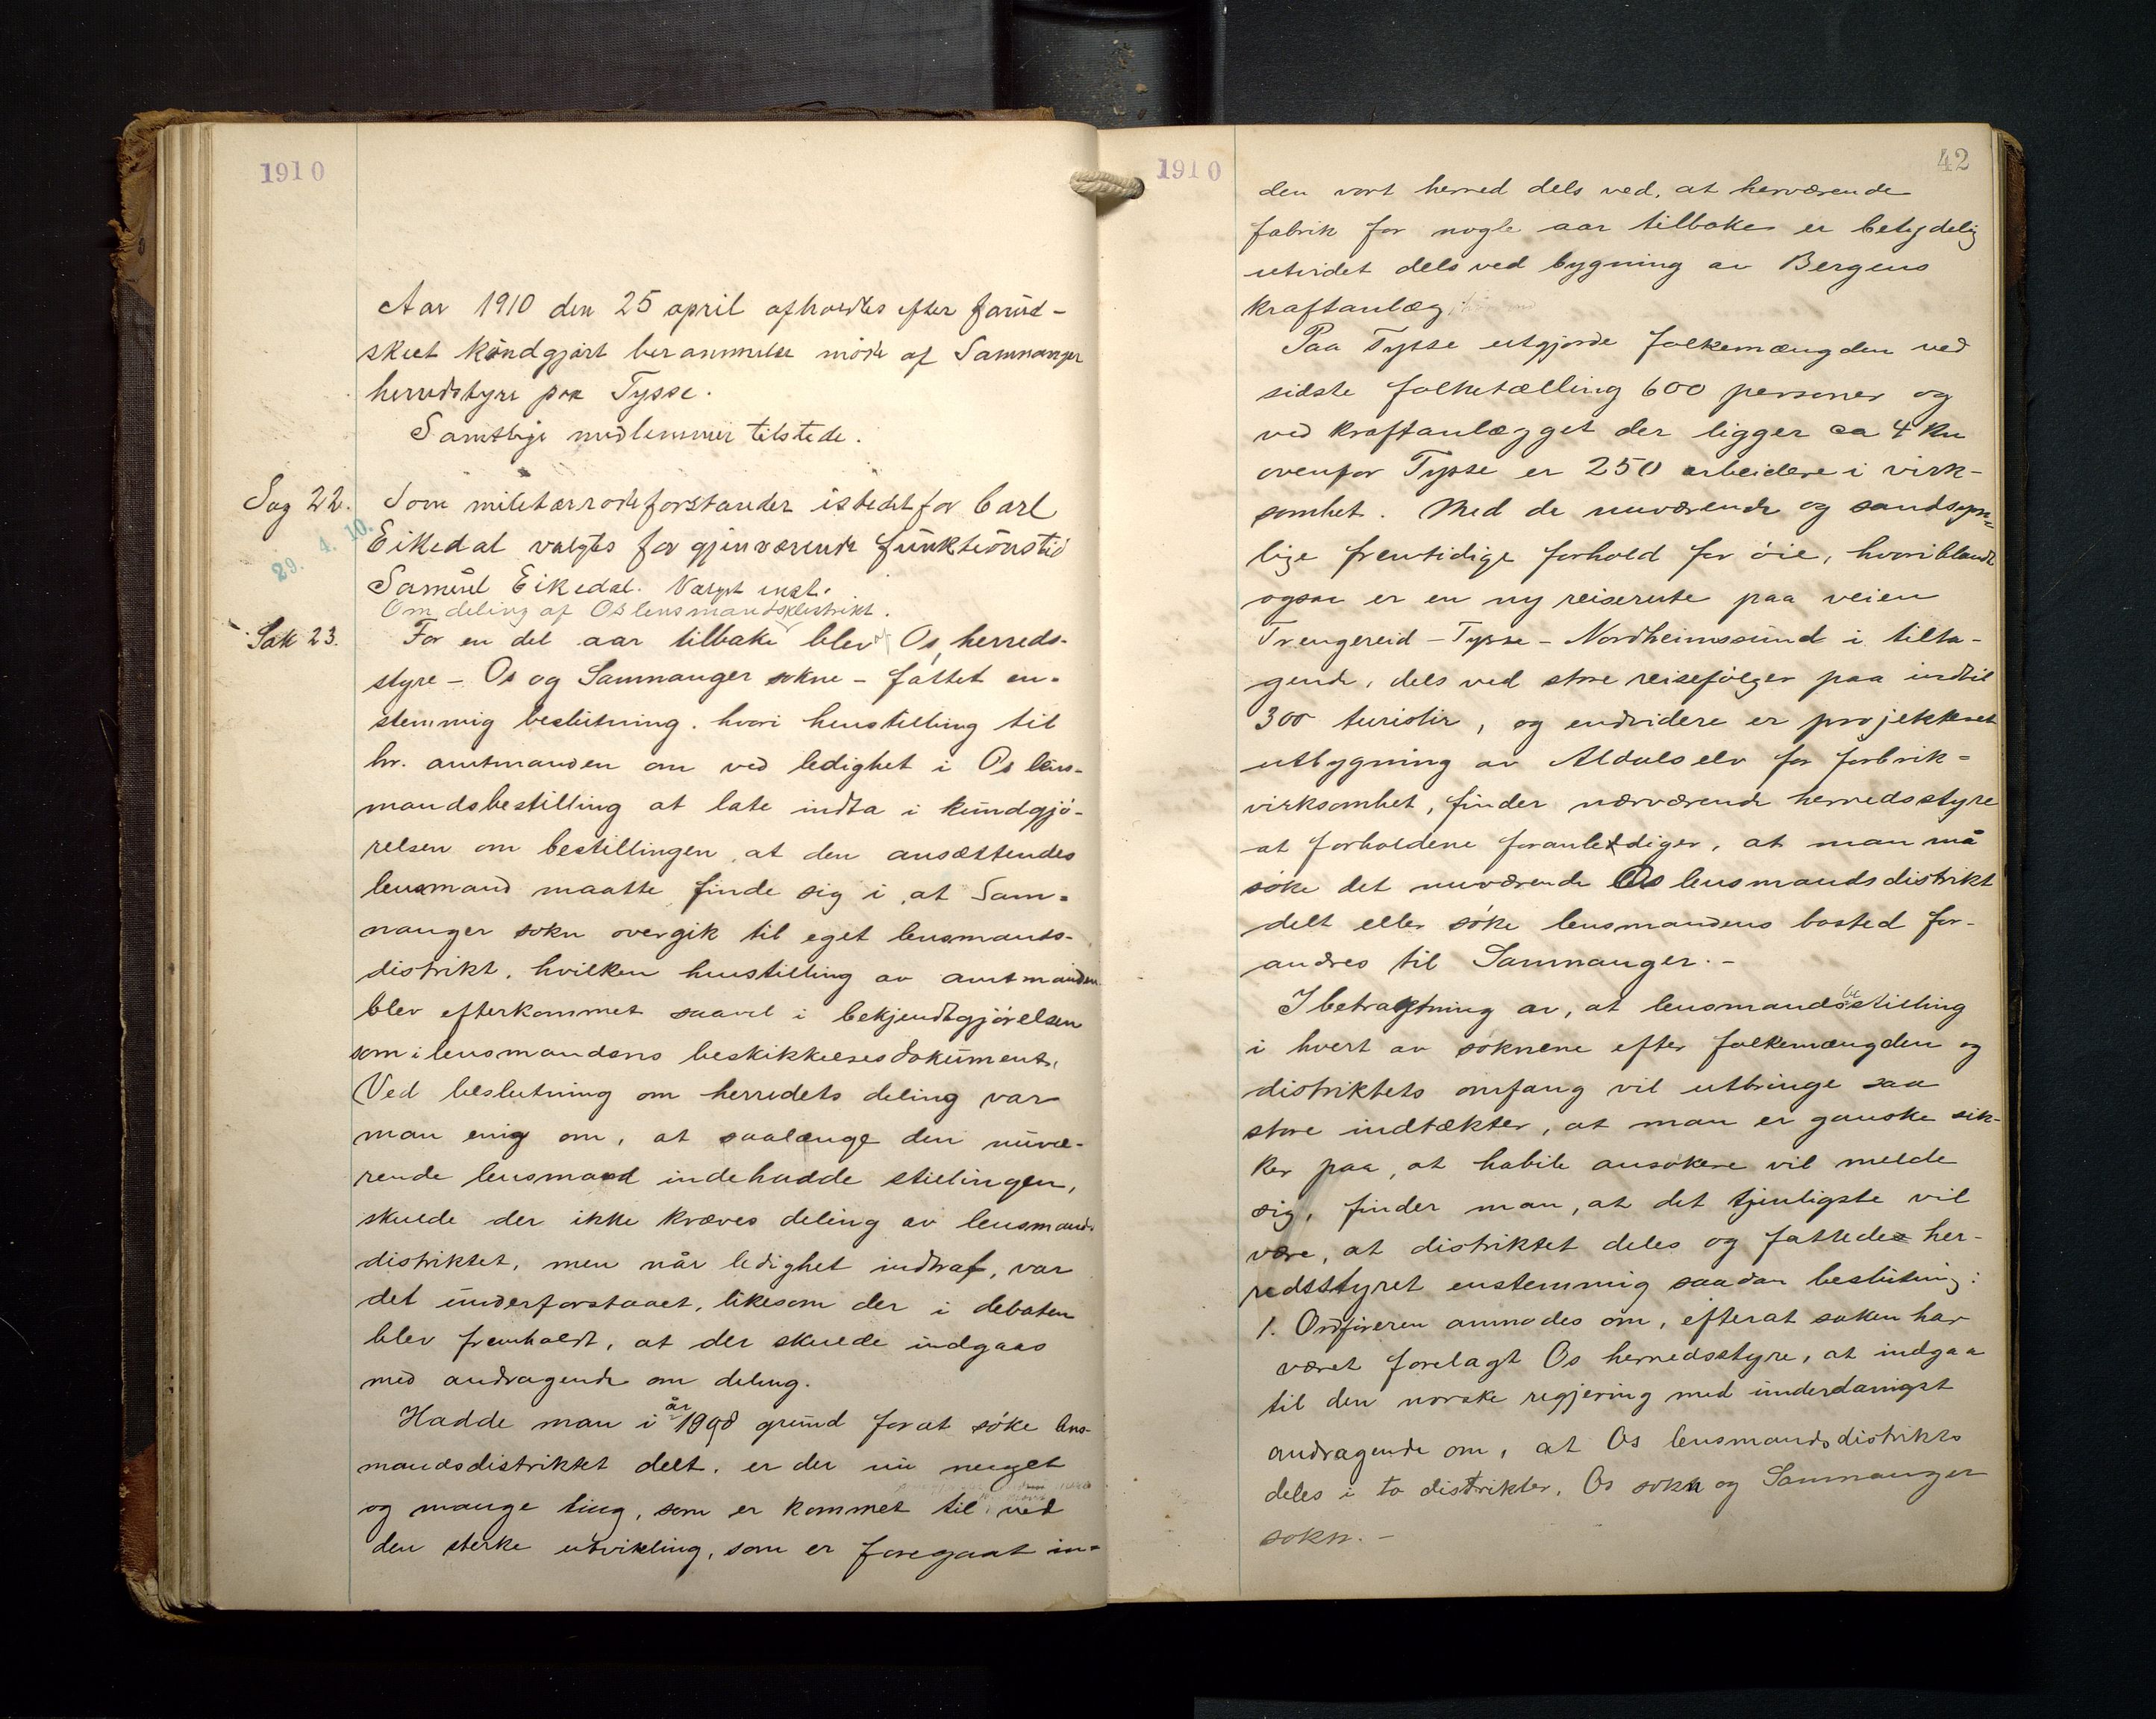 1910
Aar 1910 den 25 april afholdtes efter forud-
skeet kundgjort berammelse møde af Samnanger
herredstyre paa Tysse.
Samtlige medlemmer tilstede.
Sag 22.
29. 4. 10.
Som militærrodeforstander istedetfor Carl
Eikedal valgtes for gjenværende funktionstid
Samuel Eikedal. Valgt enst.
Om deling af Os lensmandsdistrikt.
Sak 23.
For en del aar tilbake blev af Os herreds-
styre - Os og Samnanger sokne - fattet en-
stemmig beslutning. hvori henstilling til
hr. amtmanden om ved ledighet i Os lens-
mandsbestilling at late indta i kundgjø-
relsen om bestillingen, at den ansættendes
lensmand maatte finde sig i, at Sam-
nanger sokn overgik til eget lensmands-
distrikt, hvilken henstilling av amtmanden
blev efterkommet saavel i bekjendtgjørelsen
som i lensmandens beskikkelsesdokument.
Ved beslutning om herredets deling var
man enig om, at saalænge den nuvæ-
rende lensmand indehadde stillingen,
skulde der ikke kræves deling av lensmands
distriktet, men når ledighet indtraf, var
det underforstaaet, likesom der i debaten
blev fremholdt, at der skulde indgaas
med andragende om deling.
Hadde man i år 1898 grund for at søke lens-
mandsdistriktet delt, er der nu meget
og mange ting, som er kommet til ved
den sterke utvikling, som er foregaat in-
1910
42
den vort herred dels ved, at herværende
fabrik for nogle aar tilbake er betydelig
utvidet dels ved bygning av Bergens
kraftanlæg.
Paa Tysse utgjorde folkemængden ved
sidste folketælling 600 personer og
ved kraftanlægget der ligger ca 4 km
ovenfor Tysse er 250 arbeidere i virk-
somhet. Med de nuværende og sandsyn-
lige fremtidige forhold for øie, hvoriblandt
ogsaa er en ny reiserute paa veien
Trengereid - Tysse - Nordheimssund i tilta-
gende, dels ved store reisefølger paa indtil
300 turister, og endvidere er projekteret
utbygning av Aldalselv for fabrik-
virksomhet, finder nærværende herredsstyre
at forholdene foranlediger, at man må
søke det nuværende Os lensmandsdistrikt
delt eller søke lensmandens bosted for-
andres til Samnanger. -
I betragtning av, at lensmandsbestilling
i hvert av soknene efter folkemængden og
distriktets omfang vil utbringe saa
store indtækter, at man er ganske sik-
ker paa, at habile ansøkere vil melde
sig, finder man, at det tjenligste vil
være, at distriktet deles og fattedes her-
redsstyret enstemmig saadan beslutning:
1. Ordføreren anmodes om, efterat saken har
været forelagt Os herredsstyre, at indgaa
til den norske regjering med underdanigst
andragende om, at Os lensmandsdistrikts
deles i to distrikter, Os sokn og Samnanger
sokn. -